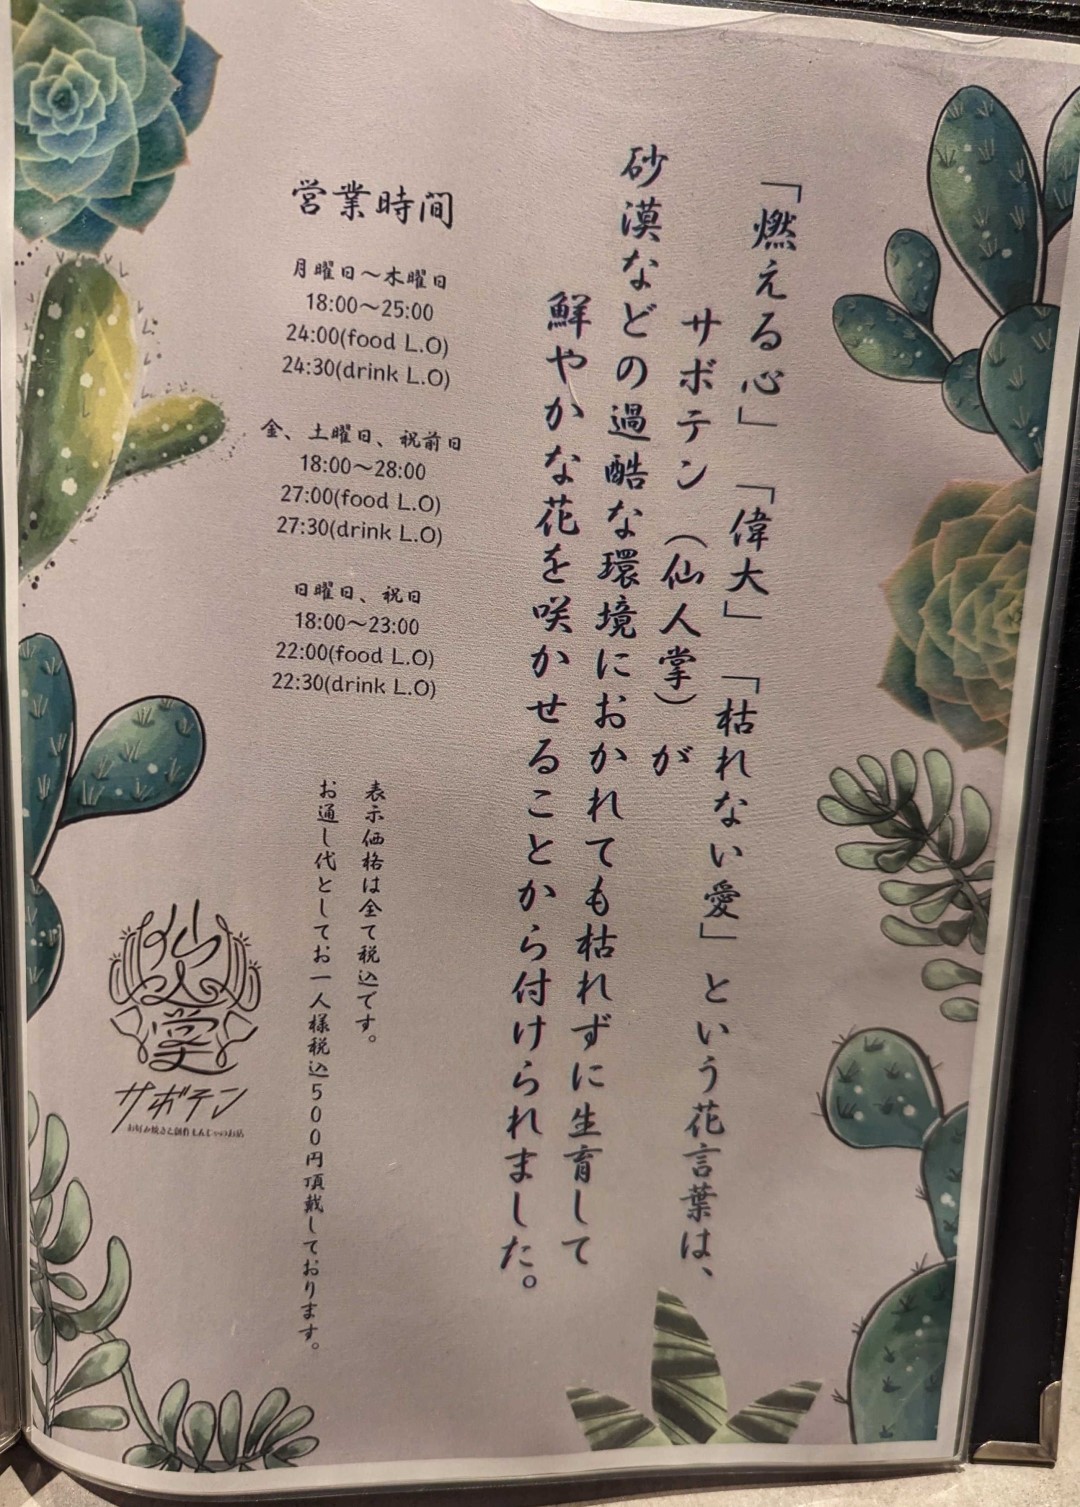 「燃える心」「偉大」「枯れない愛」という花言葉は、
サボテン（仙人掌）が
砂漠などの過酷な環境におかれても枯れずに生育して
鮮やかな花を咲かせることから付けられました。
営業時間
月曜日～木曜日
18:00～25:00
24:00(food L.O)
24:30(drink L.O)
金、土曜日、祝前日
18:00～28:00
27:00(food L.O)
27:30(drink L.O)
日曜日、祝日
18:00～23:00
22:00(food L.O)
22:30(drink L.O)
表示価格は全て税込です。
お通し代としてお一人様税込500円頂戴しております。
仙人掌
サボテン
お好み焼きと創作もんじゃのお店